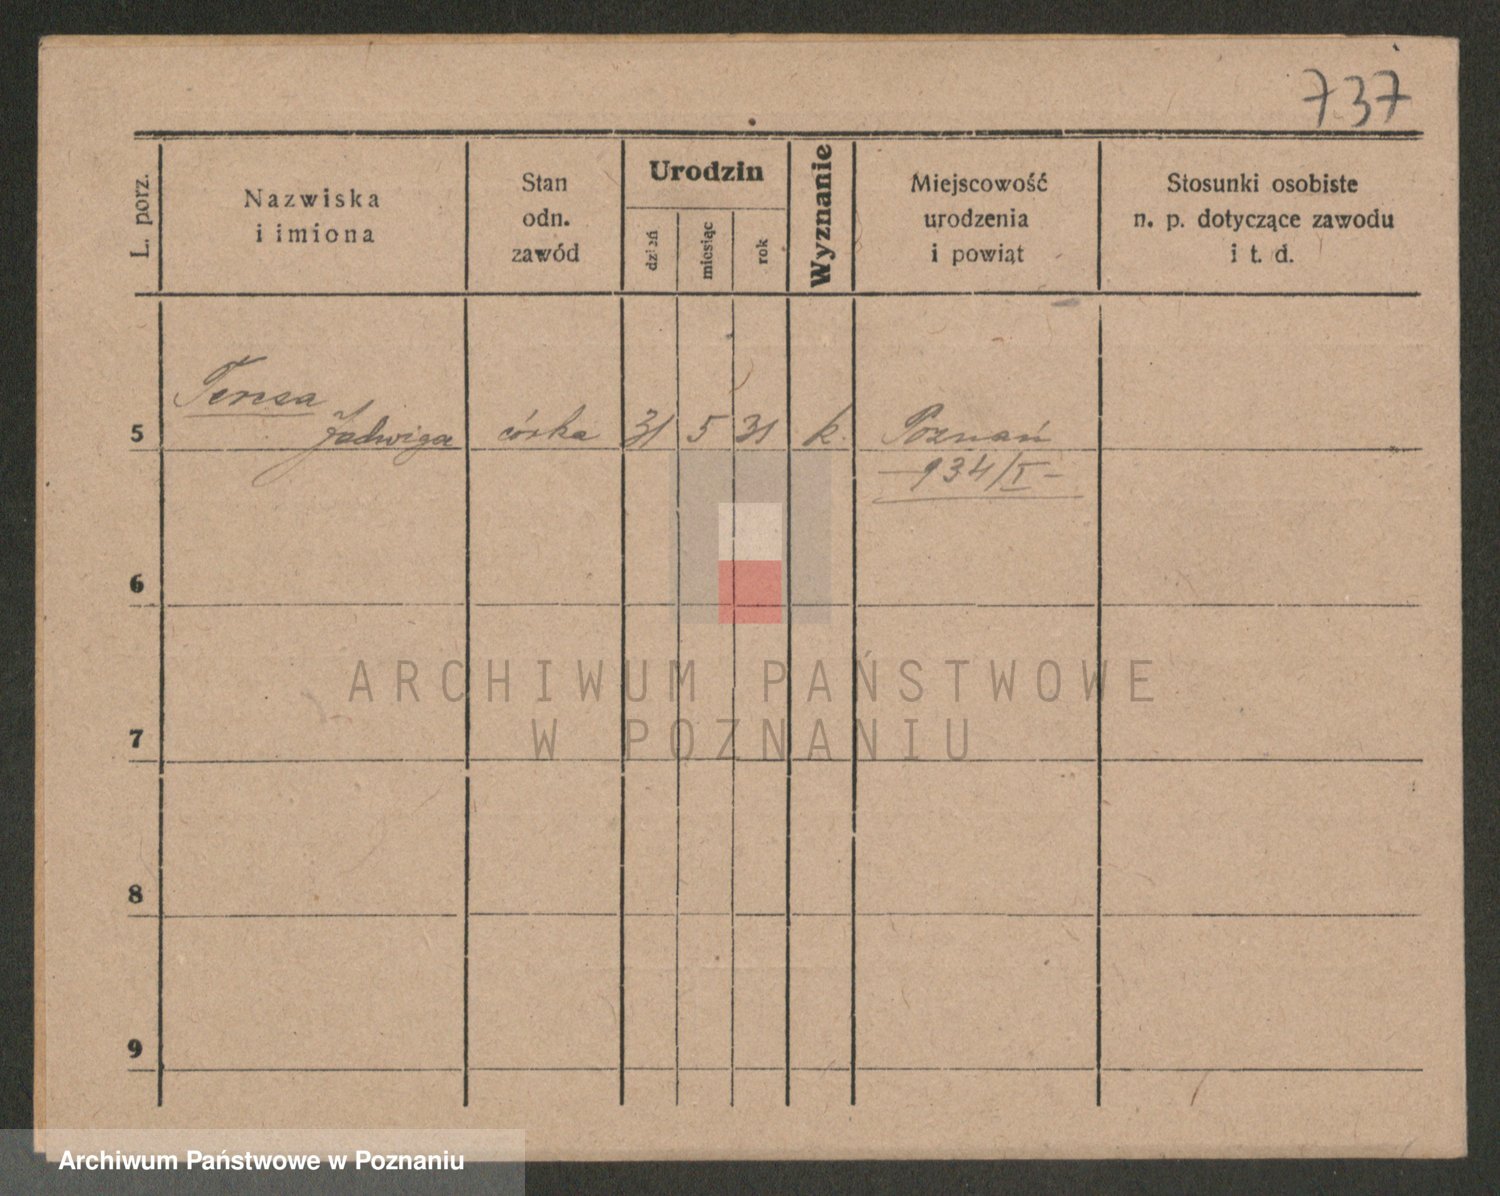 737
L. porz.
Nazwiska
i imiona
Stan
odn.
zawód
Urodzin
dzień
miesiąc
rok
Wyznanie
Miejscowość
urodzenia
i powiąt
Stosunki osobiste
n. p. dotyczące zawodu
i t. d.
Teresa
5 Jadwiga córka 31 5 31 k. Poznań
—934/I—
6
7
8
9
ARCHIWUM PAŃSTWOWE
W POZNANIU
Archiwum Państwowe w Poznaniu